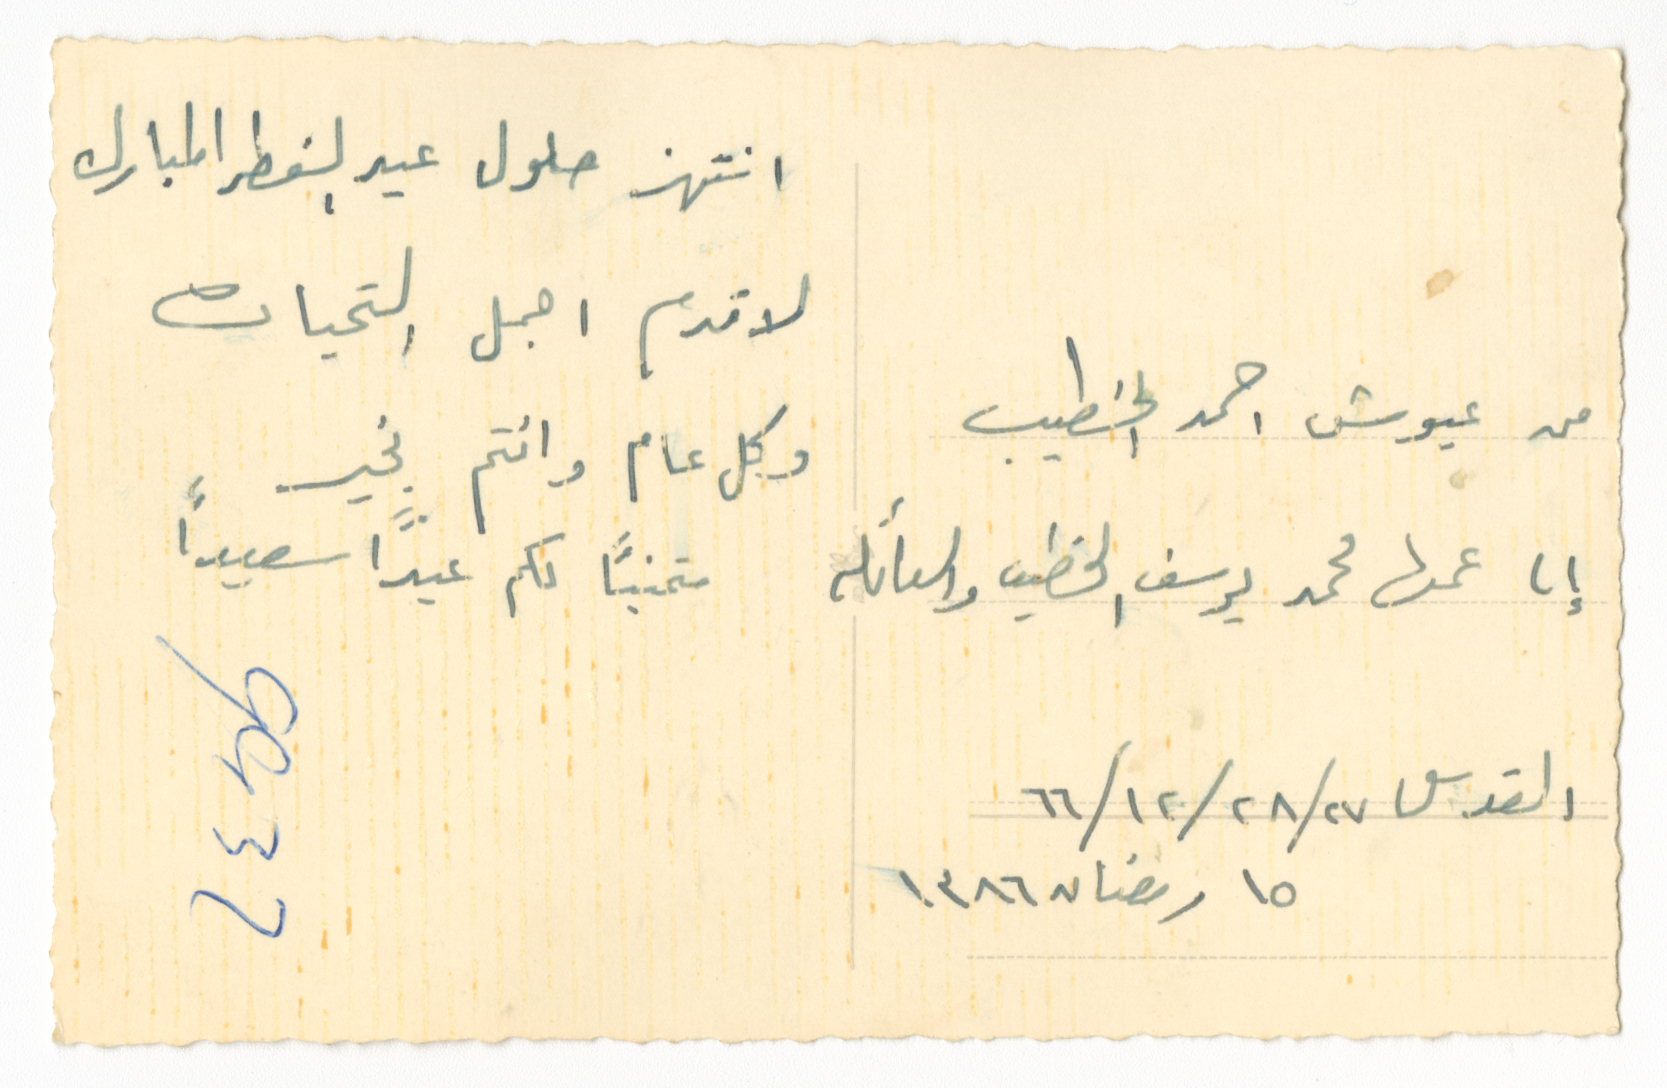 انتهز حلول عيد الفطر المبارك
لاقدم اجمل التحيات
وكل عام وانتم بخير
متمنيًا لكم عيدًا سعيدًا
من عيوش احمد الخطيب
إلى عمها محمد يوسف الخطيب والعائله
القدس ٢٧/٢٨/١٢/٦٦
١٥ رمضان ١٣٨٦
9437